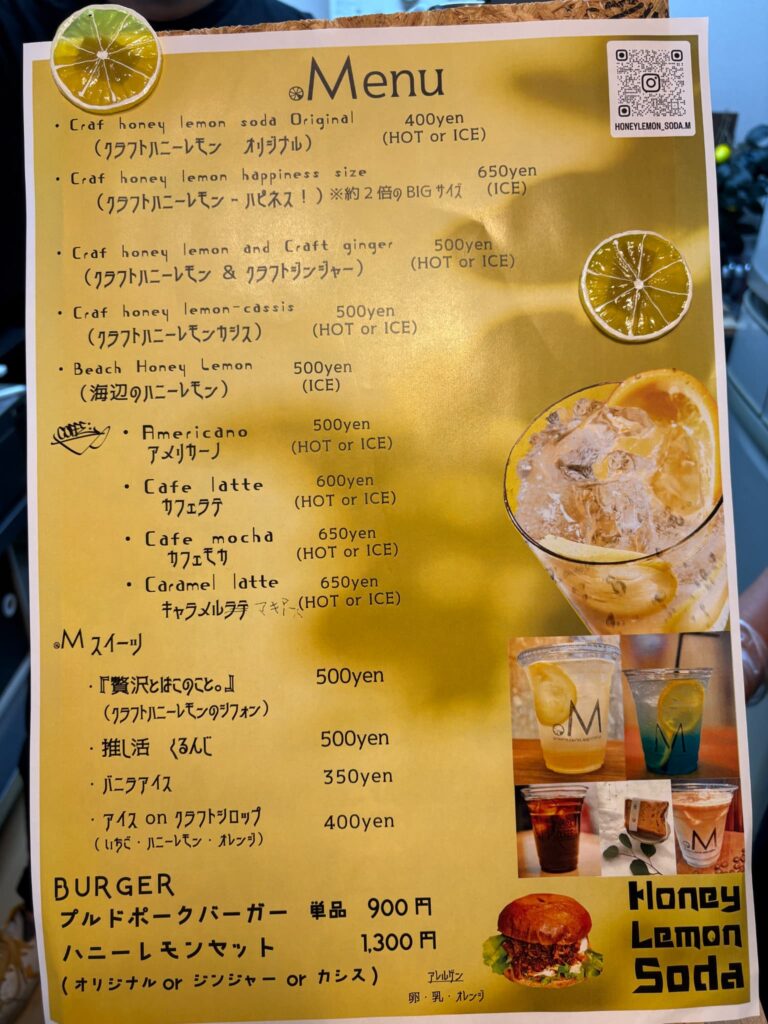 Menu
HONEYLEMON_SODA.M
・Craf honey lemon soda Original 400yen
（クラフトハニーレモン オリジナル） (HOT or ICE)
・Craf honey lemon happiness size 650yen
（クラフトハニーレモン - ハピネス！）※約2倍のBIGサイズ (ICE)
・Craf honey lemon and Craft ginger 500yen
（クラフトハニーレモン & クラフトジンジャー） (HOT or ICE)
・Craf honey lemon-cassis 500yen
（クラフトハニーレモンカシス） (HOT or ICE)
・Beach Honey Lemon 500yen
（海辺のハニーレモン） (ICE)
COFFEE
・Americano 500yen
アメリカーノ (HOT or ICE)
・Cafe latte 600yen
カフェラテ (HOT or ICE)
・Cafe mocha 650yen
カフェモカ (HOT or ICE)
・Caramel latte 650yen
キャラメルラテ (HOT or ICE)
M スイーツ
・『贅沢とはこのこと。』 500yen
（クラフトハニーレモンのシフォン）
・推し活 くるんじ 500yen
・バニラアイス 350yen
・アイス on クラフトシロップ 400yen
（いちご・ハニーレモン・オレンジ）
M
M
M
BURGER
プルドポークバーガー 単品 900円
ハニーレモンセット 1,300円
（オリジナル or ジンジャー or カシス）
アレルゲン
卵・乳・オレンジ
Honey
Lemon
Soda